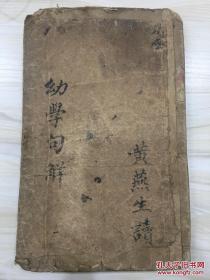 幼學句解
黃燕生讀